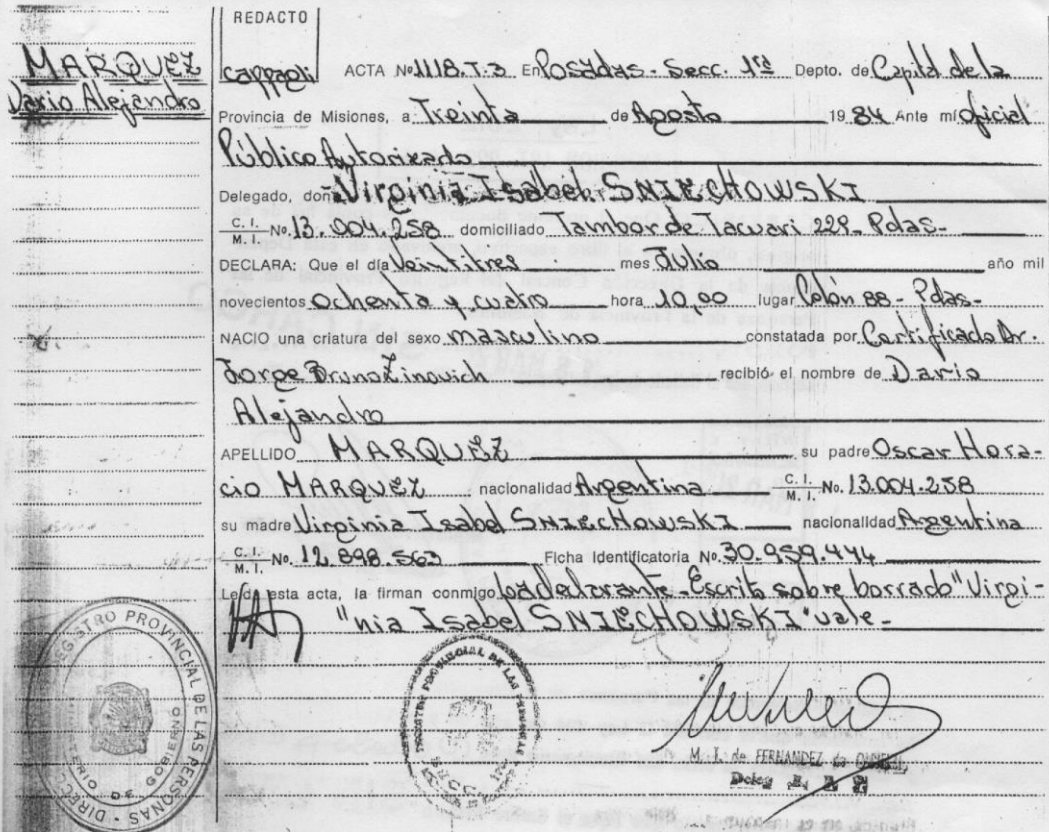 REDACTO
MARQUEZ
Dario Alejandro
Cappaoli ACTA Nº 1118.T.3 En Posadas - Secc. 1ra Depto. de Capital de la
Provincia de Misiones, a Treinta de Agosto 1984 Ante mi Oficial
Público Autorizado
Delegado, doña Virginia Isabel SNIECHOWSKI
C. I. M. I. No. 13.004.258 domiciliado Tambor de Tacuari 229 - Pdas -
DECLARA: Que el día Veintitres mes Julio año mil
novecientos Ochenta y cuatro hora 10,00 lugar Colón 88 - Pdas -
NACIO una criatura del sexo masculino constatada por Certificado Dr.
Jorge Bruno Zinovich recibió el nombre de Dario
Alejandro
APELLIDO MARQUEZ su padre Oscar Hora-
cio MARQUEZ nacionalidad Argentina C. I. M. I. No. 13.004.258
su madre Virginia Isabel SNIECHOWSKI nacionalidad Argentina
C. I. M. I. No. 12.898.563 Ficha Identificatoria No. 30.959.444
Leída esta acta, la firman conmigo la declarante - Escrito sobre borrado "Virgi-
"nia Isabel SNIECHOWSKI" vale -
REGISTRO PROVINCIAL DE LAS PERSONAS
MINISTERIO DE GOBIERNO
REGISTRO PROVINCIAL DE LAS PERSONAS
M. I. de FERNANDEZ de